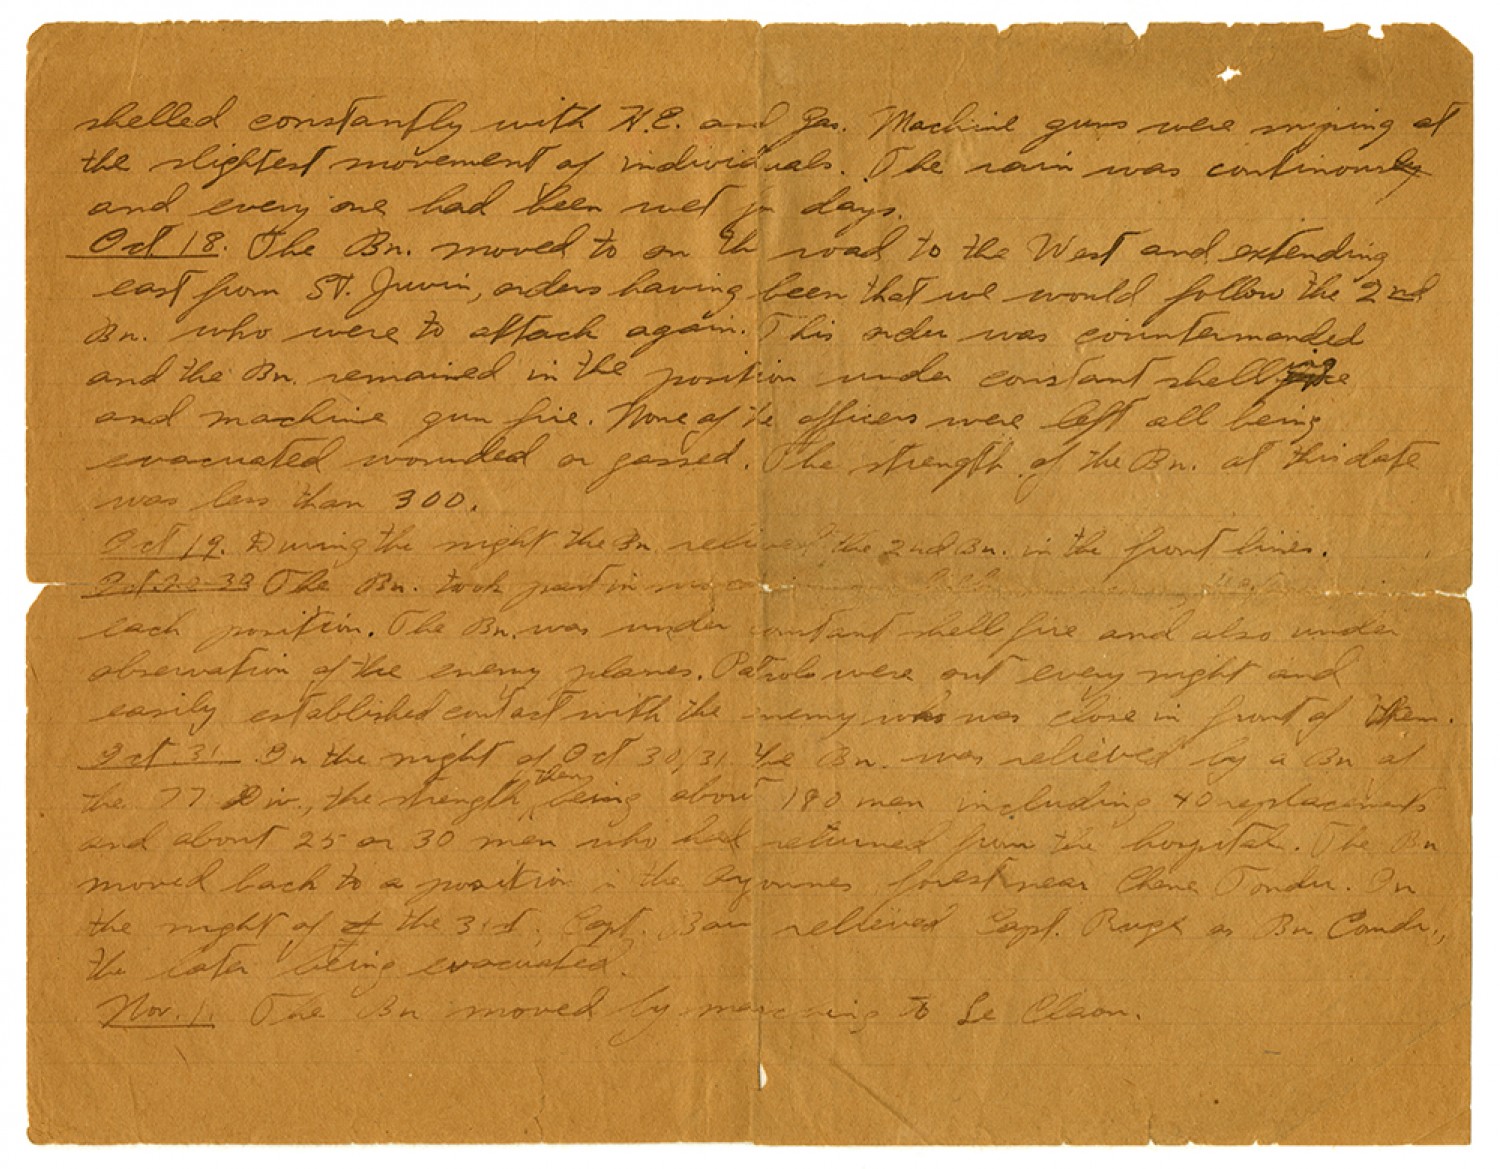 shelled constantly with H.E. and Gas. Machine guns were sniping at
the slightest movement of individuals. The rain was continous
and every one had been wet for days.
Oct 18. The Bn. moved to on the road to the West and extending
east from St. Juvin, orders having been that we would follow the 2nd
Bn. who were to attack again. This order was countermanded
and the Bn. remained in the position under constant shelling
and machine gun fire. None of the officers were left all being
evacuated wounded or gassed. The strength of the Bn. at this date
was less than 300.
Oct 19. During the night the Bn. relieved the 2nd Bn. in the front lines.
The Bn. took part in
each position. The Bn. was under constant shell fire and also under
observation of the enemy planes. Patrols were out every night and
easily established contact with the enemy who was close in front of them.
Oct. 31. On the night of Oct 30/31 the Bn. was relieved by a Bn of
the 77 Div., the strength then being about 180 men including 40 replacements
and about 25 or 30 men who had returned from the hospital. The Bn
moved back to a position in the Argonnes forest near Chene Tondu. On
the night of the 31st, Capt. relieved Capt. as Bn. Comdr.,
the later being evacuated.
Nov. 1. The Bn moved by marching to Le Claon.